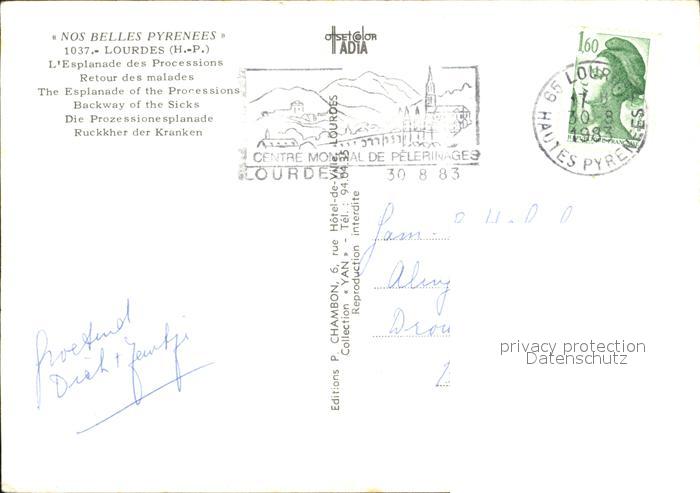 « NOS BELLES PYRENEES »
1037.- LOURDES (H.-P.)
L'Esplanade des Processions
Retour des malades
The Esplanade of the Processions
Backway of the Sicks
Die Prozessionesplanade
Ruckkher der Kranken
offset color
IADIA
1,60
65 LOURDES
17
30-8
1983
HAUTES PYRENEES
CENTRE MONDIAL DE PÈLERINAGES
LOURDES 30 8 83
Editions P. CHAMBON, 6, rue Hôtel-de-Ville, LOURDES
Collection « YAN » - Tél. : 94.04.35
Reproduction interdite
Fam.
privacy protection
Datenschutz